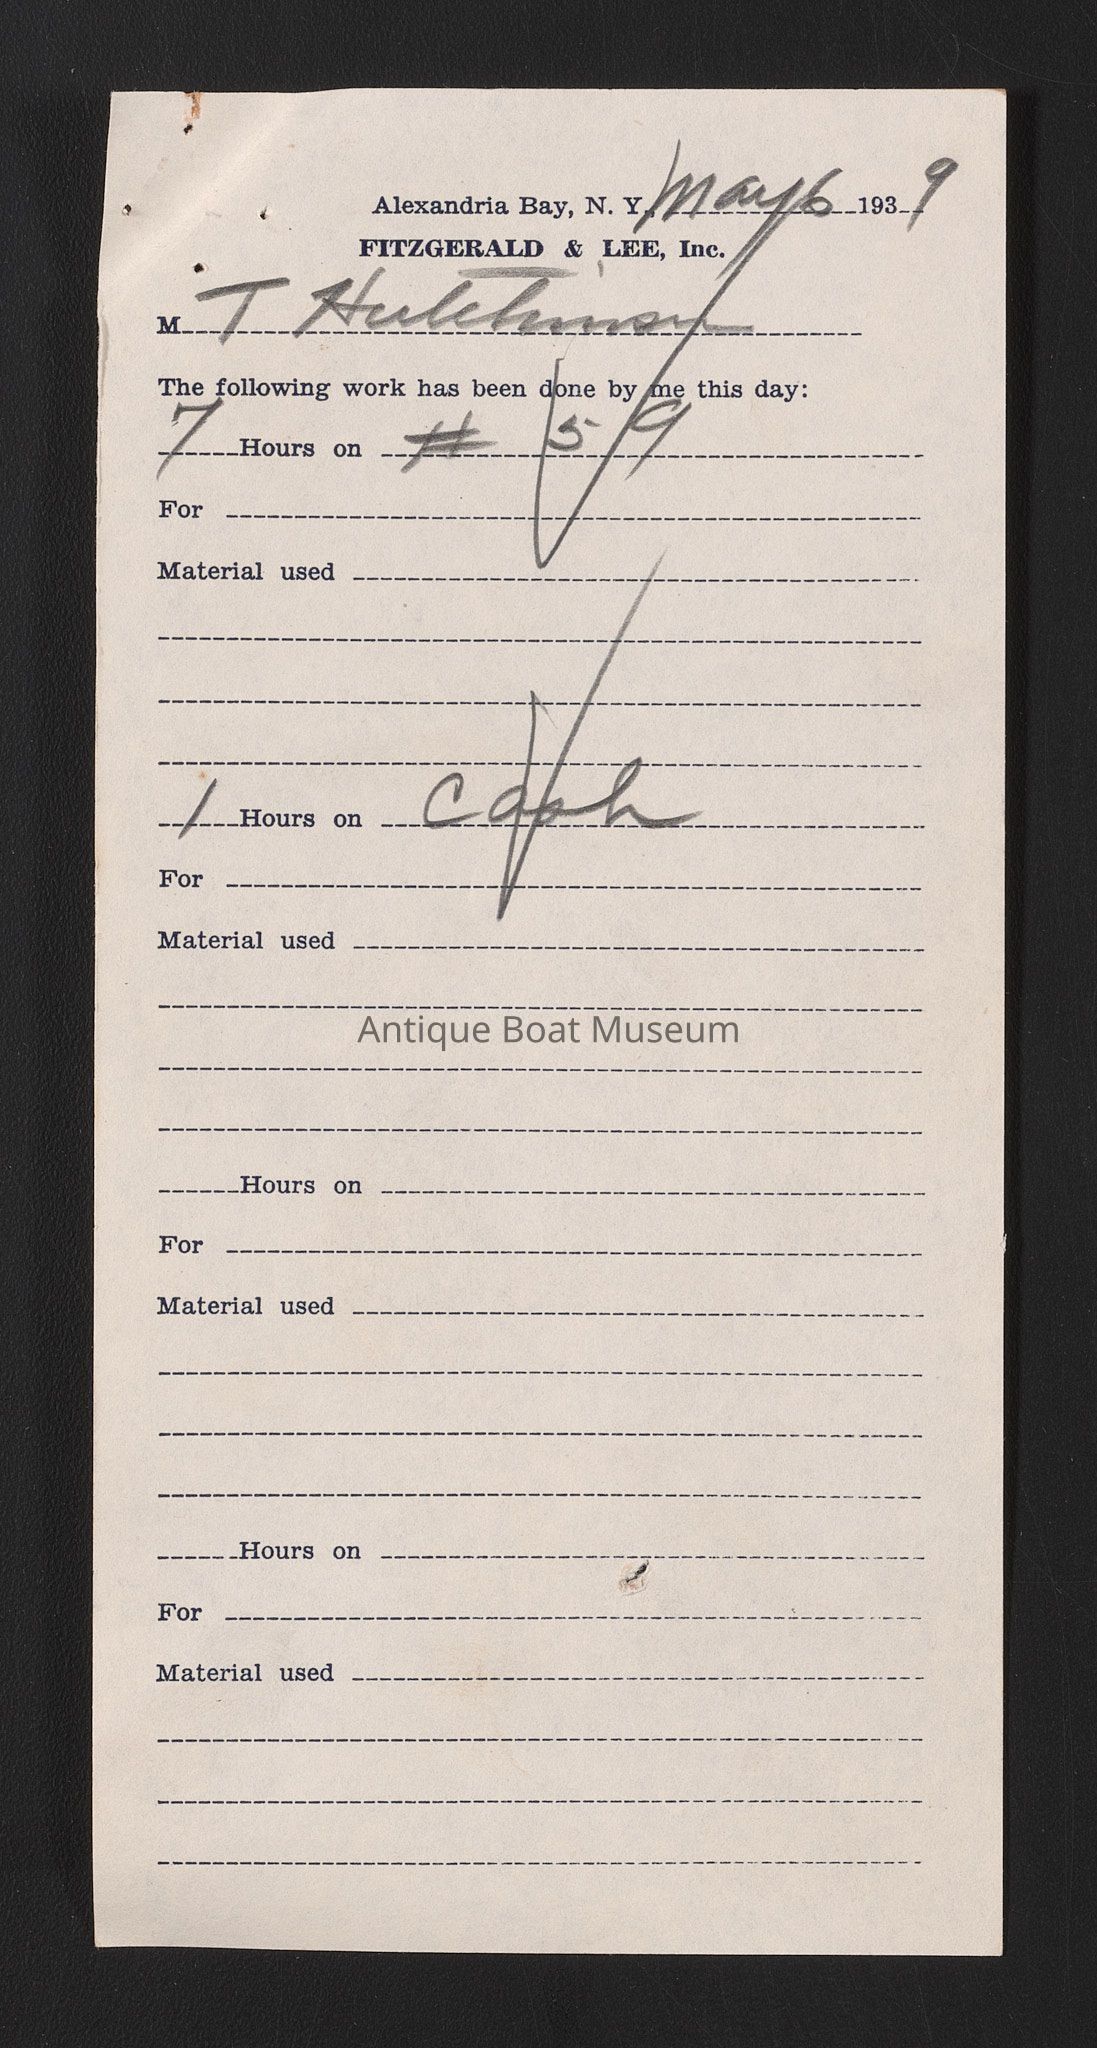 Alexandria Bay, N. Y., May 6 1939
FITZGERALD & LEE, Inc.
M T Hutchinson
The following work has been done by me this day:
7 Hours on # 59
For
Material used
1 Hours on Cash
For
Material used
Antique Boat Museum
Hours on
For
Material used
Hours on
For
Material used